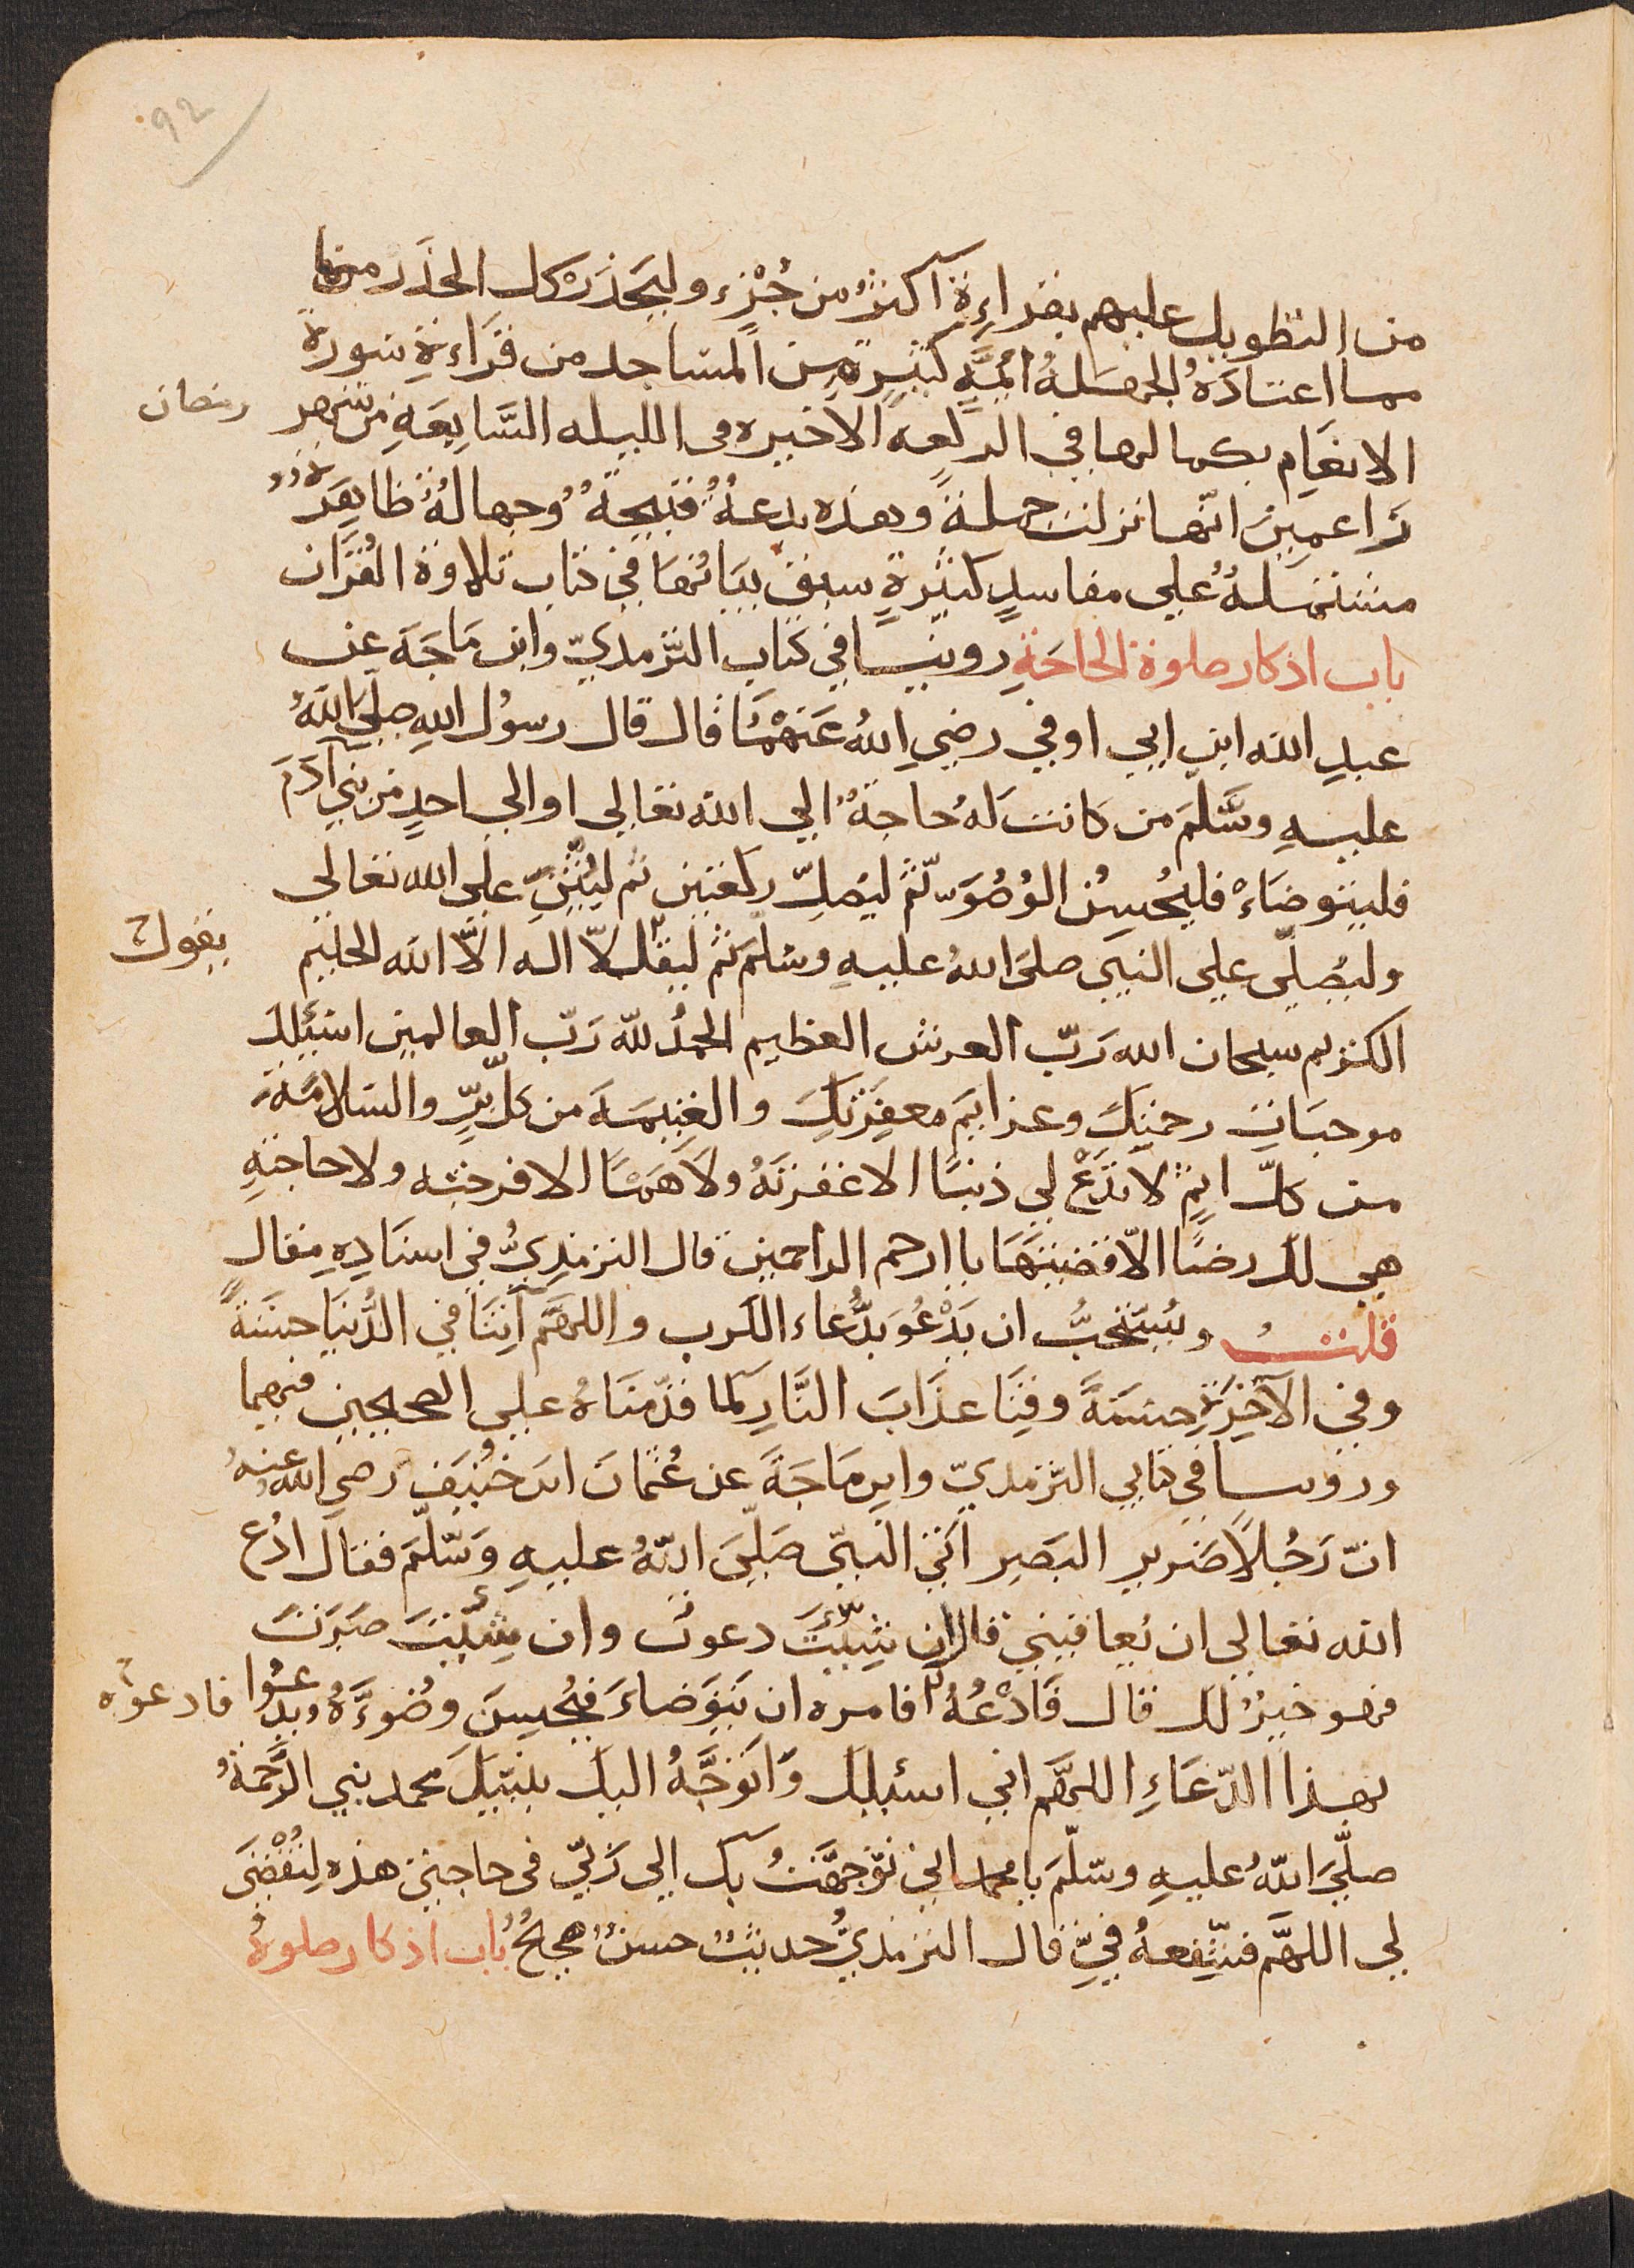 ٩٢
من التطويل عليهم بقراءة اكثر من جُزْءٍ وليَحذَرْ كل الحذَر منها
مما اعتادَهُ الجهلةُ ائمّة كثيرة من المساجد من قرَاءةِ سورة
الانعَام بكمالها في الركعه الاخيره في الليله السَّابِعَةِ من شهر
رمضان
زَاعمِينَ انّها نزلت جملةً وهذه بدعةٌ قبيحةٌ وجهالةٌ ظاهِرَةٌ
مشتملةٌ علي مفاسدٍ كثيرةٍ سبق بيَانُها في كتاب تلاوة القُرَان
باب اذكار صلوة الحاجَةِ روينا في كتاب التّرمذيّ وابن مَاجَه عن
عبدِ الله ابن ابي اوفي رضي اللهُ عَنهُمَا قال قال رسُول اللهِ صلّيَ اللهُ
عليهِ وسَّلمَ من كانت لهُ حاجةٌ الي الله تعالي او الي احدٍ من بني آدَمَ
فليتوضَاءْ فليُحسِن الوُضُوَّ ثم ليُصلِّ ركعتين ثم ليُثْنِ علي الله تعالي
وليُصلّي علي النبي صلي اللهُ عليهِ وسلّم ثم ليقل لاّ اله الاّ الله الحليم
يقول
الكريم سبحان الله رَبّ العرش العظيم الحمدُ للّه رَبّ العالمين اسئلك
موجبَات رحمتِكَ وعزايمَ مغفِرَتِكَ والغنيمَة من كل برٍّ والسَلامَة
من كلّ اثمٍ لا تدَعْ لي ذنبًا الا غفرتَهُ ولا هَمًّا الا فرجته ولا حاجَةٍ
هي لك رضًا الاّ قضيتَهَا يا ارحم الراحمين قال الترمذِيُّ في اسنَادِهِ مقال
قلتُ ويُستَحَبُّ ان يَدْعُوَ بدُعاء الكَرب واللهُمّ آتِنَا في الدُّنيَا حسَنَةً
وفي الآخِرَةِ حسَنَةً وقِنَا عذَابَ النَّارِ لما قدّمنَاهُ علي الصحيحين فيهما
وروينا في كتابي التّرمذيّ وابن مَاجَةَ عن عُثمَانَ ابن حُنَيفٍ رضي الله عنهُ
انّ رَجُلًا ضَرير البَصِر اتَي النّبيّ صَلّيَ اللّهُ عليهِ وَسّلّمَ فقال ادُع
الله تعالي ان يُعافيني قال ان شئتَ دعوتُ وان شئتَ صَبَرتَ
فهو خيرٌ لك قال فَادْعُهُ فامره ان يَتَوَضاءَ فيُحسِنَ وضُوءَهُ ويدعُوا
فادعوه
بهذا الدّعَاءِ اللهُمّ اني اسئلك وَاتَوَجَّهُ اليك بنبيّكَ محمد نبي الرَّحمَةُ
صلَّيَ اللّهُ عليهِ وسّلمَ يا محمد اني توَّجهَّتُ بك الي رَبّي في حاجتي هذه لِتُقْضَي
لي اللهُمَّ فشَفِّعهُ فيَّ قال الترمذيُّ حديثٌ حسنٌ صحيحٌ باب اذكار صلوة